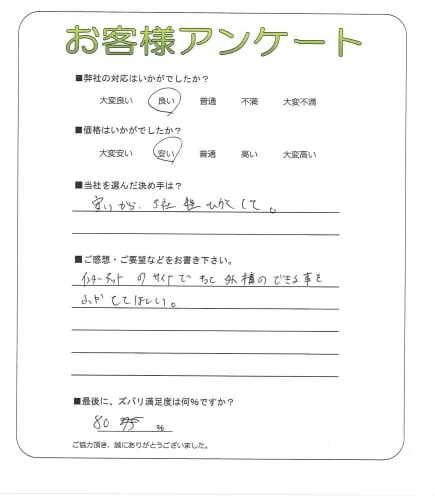 お客様アンケート
■弊社の対応はいかがでしたか?
大変良い 良い 普通 不満 大変不満
■価格はいかがでしたか?
大変安い 安い 普通 高い 大変高い
■当社を選んだ決め手は?
安いから、3社 して。
■ご感想・ご要望などをお書き下さい。
インターネットのサイトでもっと外構のできる事を
ふかしてほしい。
■最後に、ズバリ満足度は何%ですか?
80 %
ご協力頂き、誠にありがとうございました。